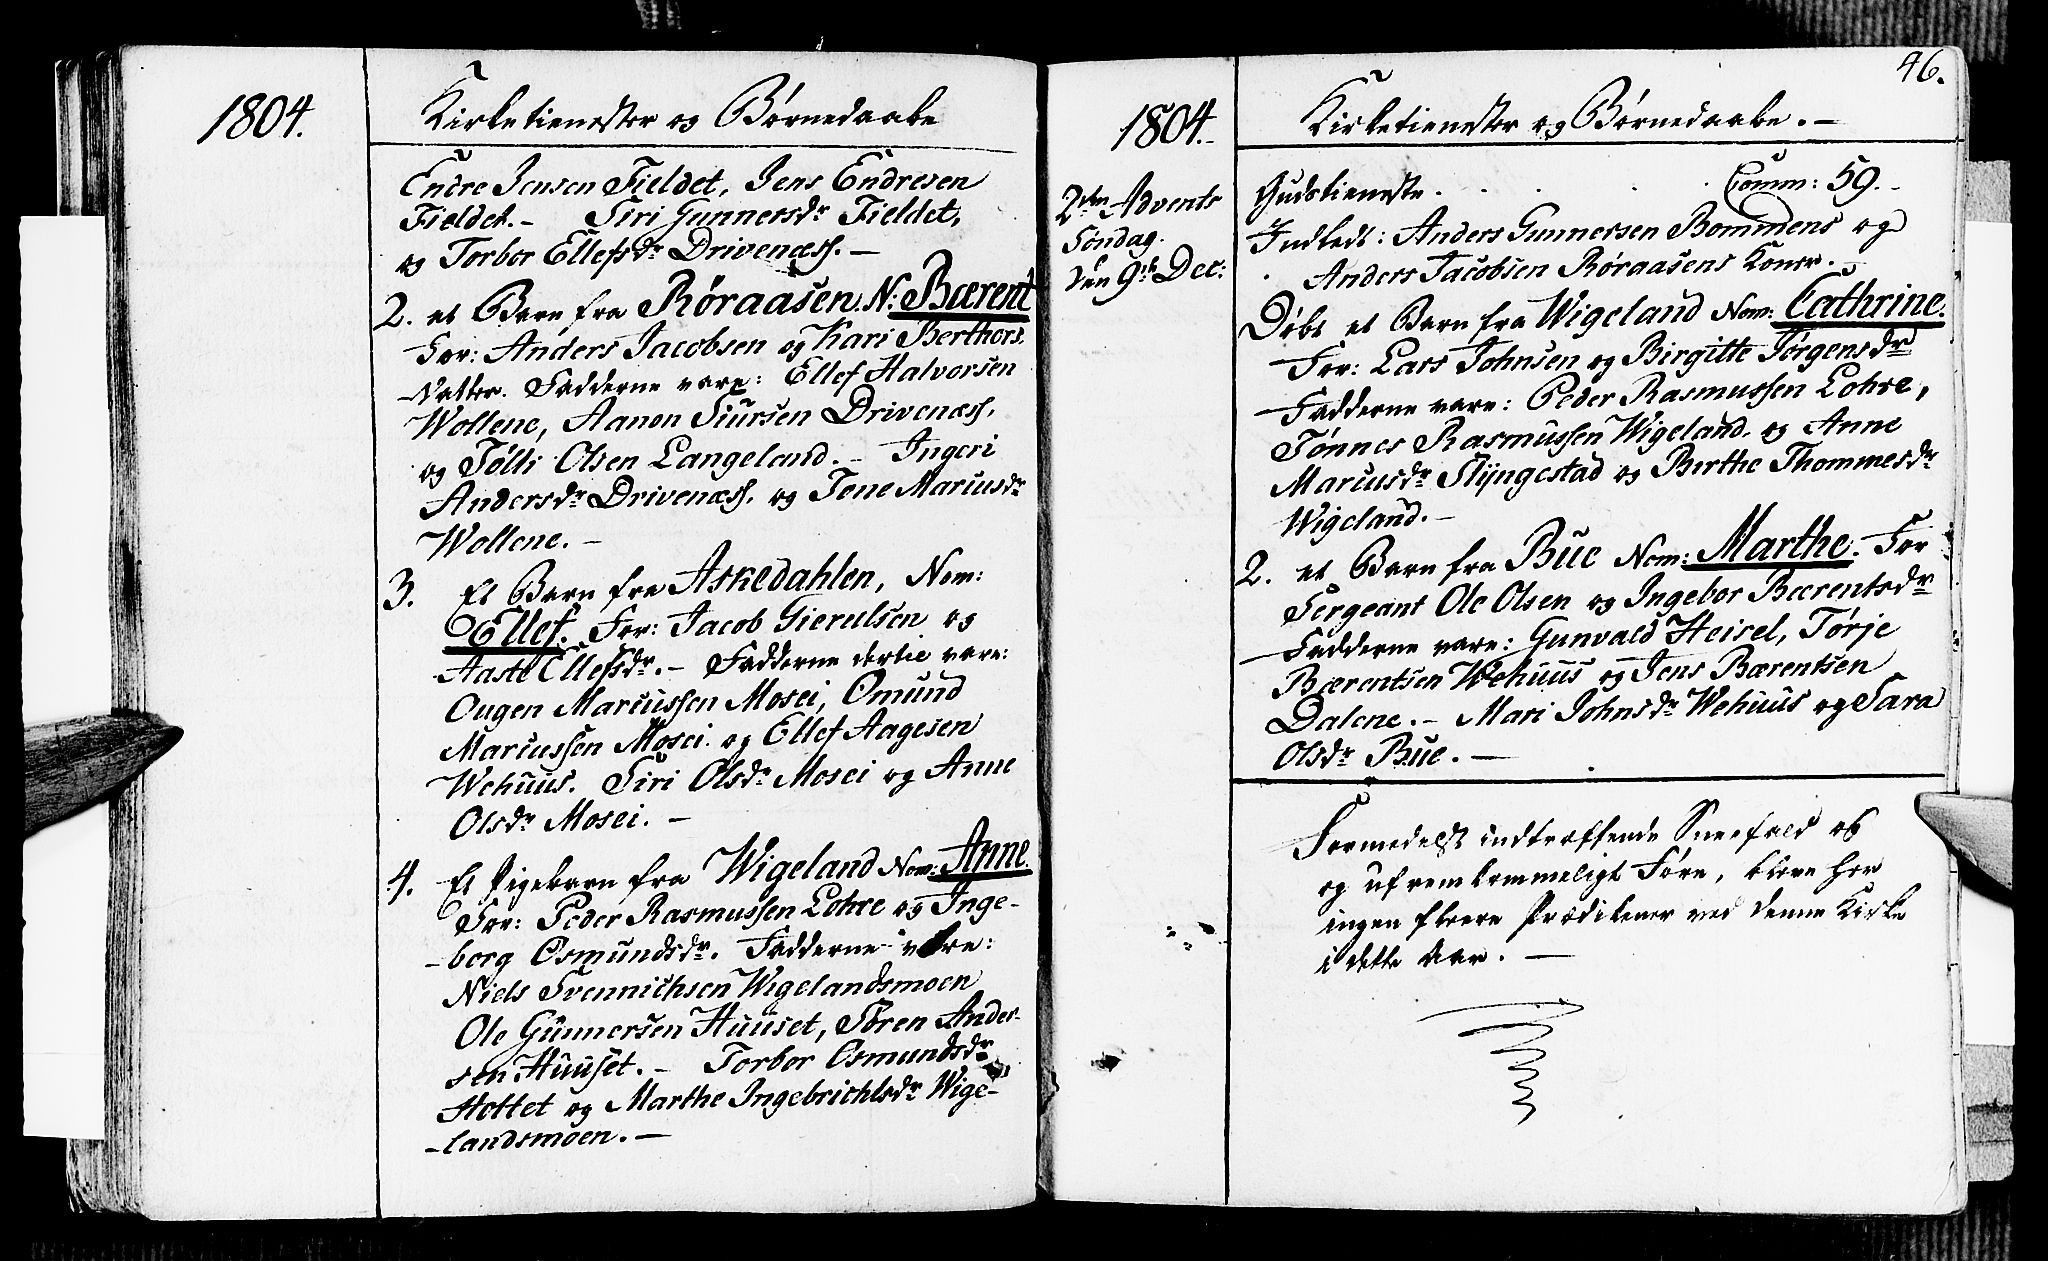 1804.
Kirketienester og Børnedaabe
Endre Jensen Fieldet, Jens Endresen
Fieldet. - Siri Gunnersdr Fieldet,
og Torbor Ellefsdr Drivenæss. -
2. et Barn fra Røraasen. N: Bærent
For: Anders Jacobsen og Kari Berthors
Datter. Fadderne vare: Ellef Halvorsen
Wollene, Aanon Siursen Drivenæss,
og Tølli Olsen Langeland. - Ingeri
Andersdr Drivenæss. og Tone Marcusdr
Wollene. -
3. Et Barn fra Askedahlen, Nom:
Ellef. For: Jacob Gierulsen og
Aaste Ellefsdr. - Fadderne dertil vare:
Ougen Marcussen Mosei, Omund
Marcussen Mosei og Ellef Aagesen
Wehuus. Siri Olsdr Mosei og Anne
Olsdr Mosei. -
4. Et Pigebarn fra Wigeland Nom: Anne.
For: Peder Rasmussen Lohre og Inge-
-borg Osmundsdr. Fadderne vare:
Niels Svennichsen Wigelandsmoen
Ole Gunnersen Huuset, Søren Ander-
sen Huuset. - Torbor Osmundsdr
Stottet og Marthe Ingebrichtsdr Wige-
-landsmoen. -
46.
1804.
Kirketienester og Børnedaabe. -
2den Advents
Søndag.
den 9de Dec:
Gudstieneste. . . . . Comm: 59. -
Indledt: Anders Gunnersen Bommens og
Anders Jacobsen Røraasens Koner. -
Døbt et Barn fra Wigeland Nom: Cathrine.
For: Lars Johnsen og Birgitte Jørgensdr
Fadderne vare: Peder Rasmussen Lohre,
Tønnes Rasmussen Wigeland. og Anne
Marcusdr Slyngestad og Birthe Thommesdr
Wigeland. -
2. et Barn fra Bue Nom: Marthe. For
Sergeant Ole Olsen og Ingebor Bærentsdr
Fadderne vare: Gunvald Heisel, Tørje
Bærentsen Wehuus og Jens Bærentsen
Dalene. - Mari Johnsdr Wehuus og Sara
Olsdr Bue. -
Formedelst indtræffende Sneefald og
og ufremkommeligt Føre, bleve her
ingen fleere Prædikener ved denne Kirke
i dette Aar. -